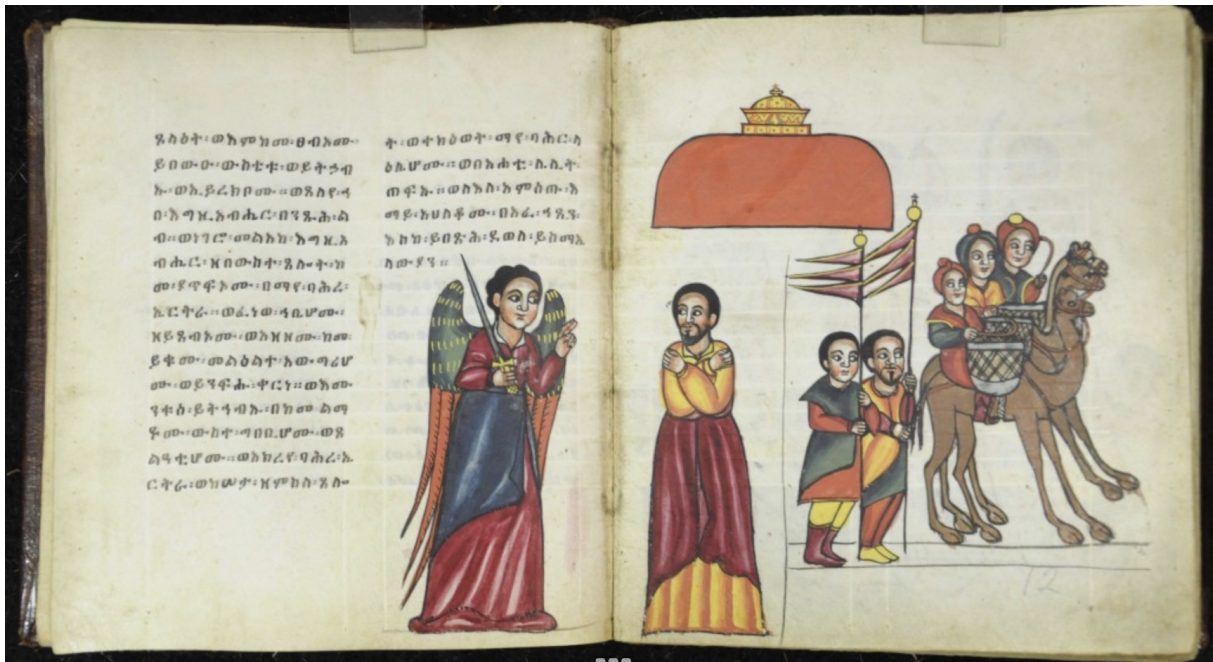 ጸላዕት፡ወእምከመ፡ፀብኦሙ፡
ይበውዑ፡ውስቴቱ፡ወይትኃብ
ኡ፡ወኢይረክቦሙ፡፡ወጸለየ፡ኀ
በ፡እግዚአብሔር፡በንጹሕ፡ል
ብ፡፡ወነገሮ፡መልአከ፡እግዚአ
ብሔር፡ዘበውስተ፡ጸሎት፡ከ
መ፡ያጥፍኦሙ፡በማየ፡ባሕረ፡
ኤርትራ፡፡ወፈነወ፡ኀቤሆሙ፡
ዘይጸብኦሙ፡ወአዘዞሙ፡ከመ፡
ይቁሙ፡መልዕልተ፡አውግሪሆ
ሙ፡ወይንፍሑ፡ቀርነ፡፡ወእሙ
ንቱሰ፡ይትኀብኡ፡በከመ፡ልማ
ዶሙ፡ውስተ፡ግበቢሆሙ፡ወጸ
ልዓቲሆሙ፡፡ወአክረየ፡ባሕረ፡ኤ
ርትራ፡ወከሠታ፡ዘምስለ፡ጸሎ
ት፡ወተክዕወት፡ማየ፡ባሕር፡ላ
ዕሌሆሙ፡፡ወበአሐቲ፡ሌሊት፡
ጠፍኡ፡፡ወለእለ፡አምሰጡ፡እ
ማይ፡አህለቆሙ፡በአፈ፡ኀጺን፡
እስከ፡ይበጽሕ፡ደወለ፡ይስማኤ
ላውያን፡፡
12